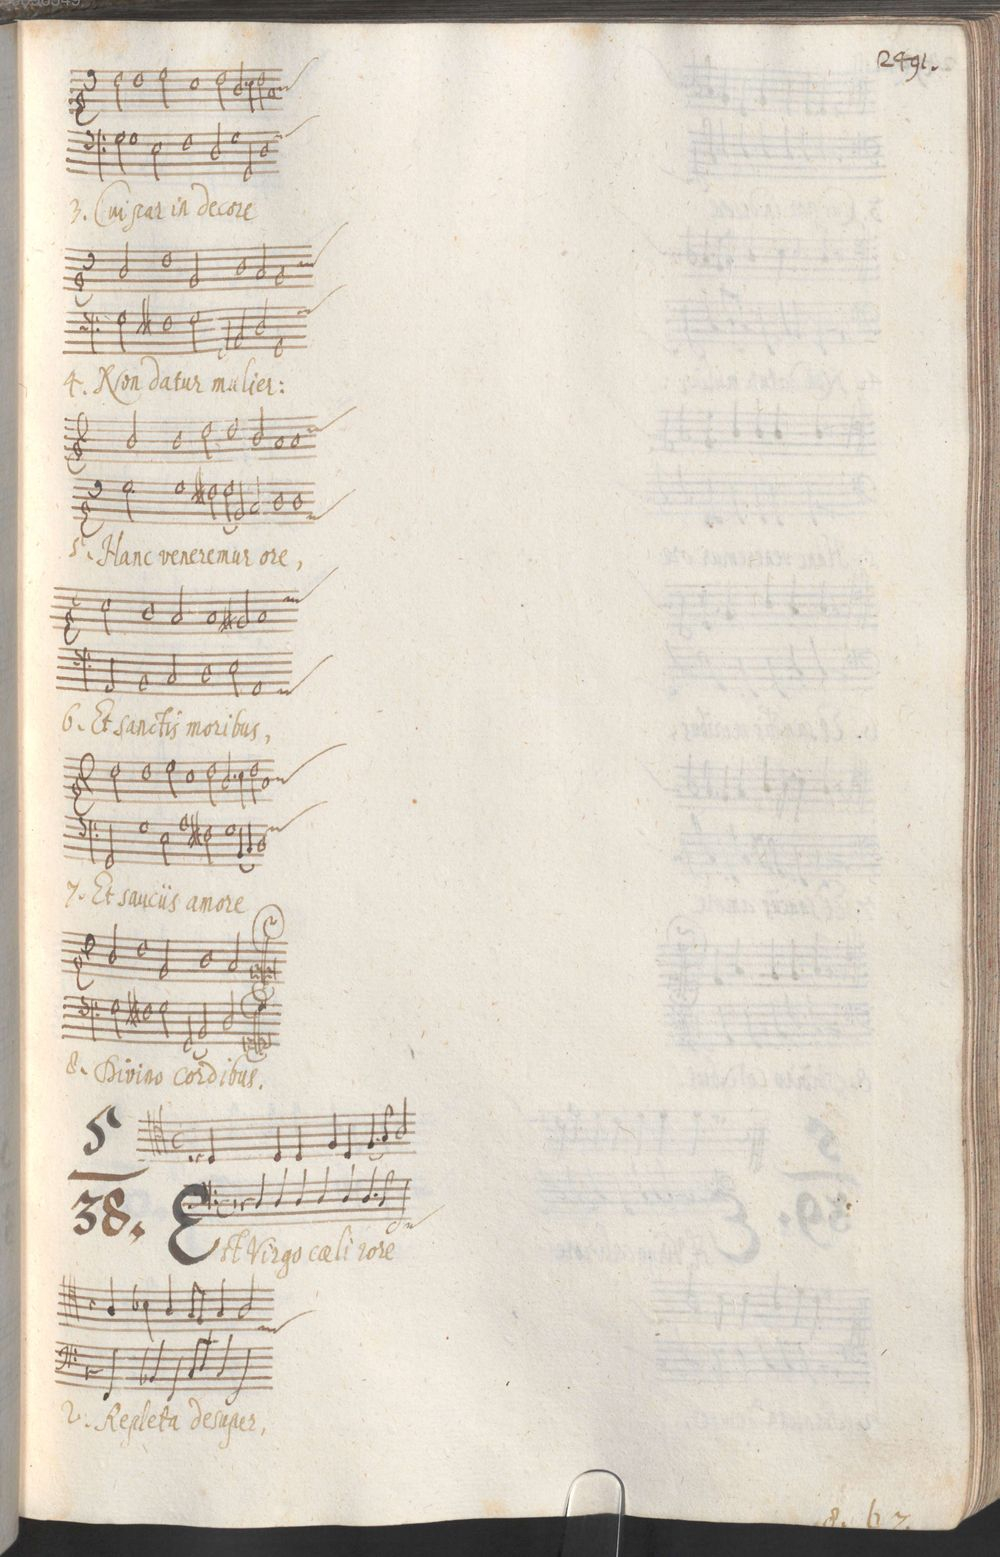 2491.
3. Cui par in decore
4. Non datur mulier:
5. Hanc veneremur ore,
6. Et sanctis moribus,
7. Et sauciis amore
8. Divino cordibus.
5
38.
Est Virgo cæli rore
2. Repleta desuper,